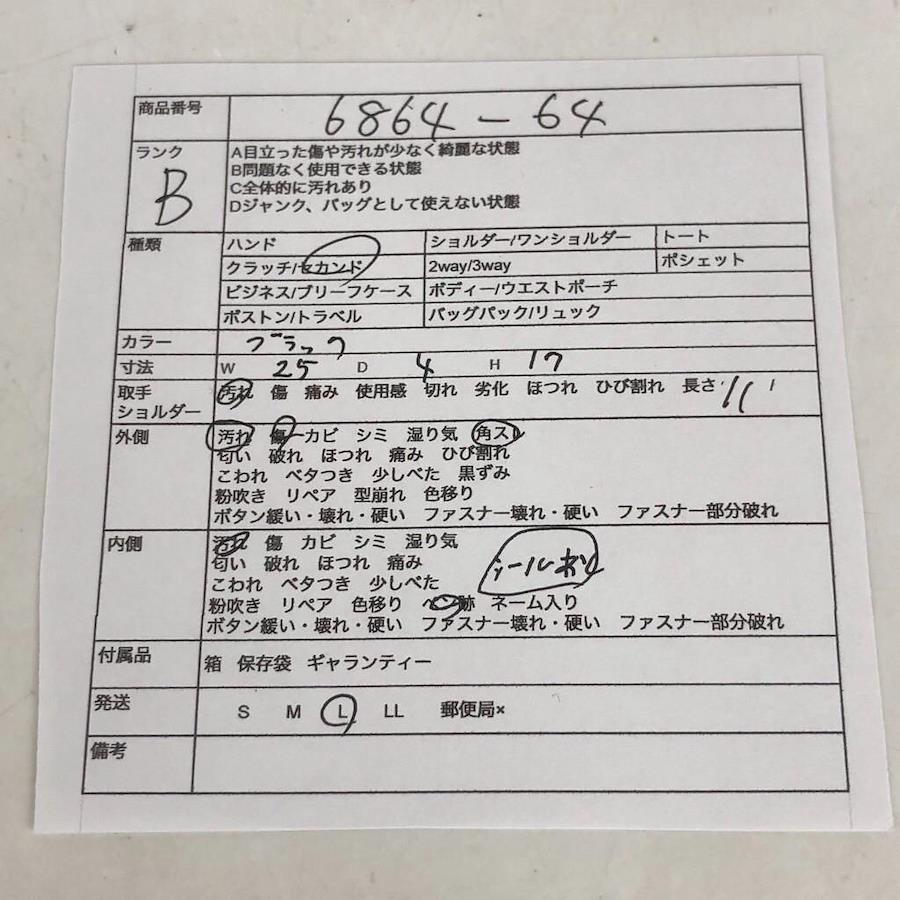 商品番号 6864-64
ランク B
A目立った傷や汚れが少なく綺麗な状態
B問題なく使用できる状態
C全体的に汚れあり
Dジャンク、バッグとして使えない状態
種類 ハンド ショルダー/ワンショルダー トート
クラッチ/セカンド 2way/3way ポシェット
ビジネス/ブリーフケース ボディー/ウエストポーチ
ボストン/トラベル バッグパック/リュック
カラー ブラック
寸法 W 25 D 4 H 17
取手 汚れ 傷 痛み 使用感 切れ 劣化 ほつれ ひび割れ 長さ
ショルダー
外側 汚れ 傷 カビ シミ 湿り気 角スレ
匂い 破れ ほつれ 痛み ひび割れ
こわれ ベタつき 少しべた 黒ずみ
粉吹き リペア 型崩れ 色移り
ボタン緩い・壊れ・硬い ファスナー壊れ・硬い ファスナー部分破れ
内側 汚れ 傷 カビ シミ 湿り気
匂い 破れ ほつれ 痛み
こわれ ベタつき 少しべた
粉吹き リペア 色移り ペン跡 ネーム入り
ボタン緩い・壊れ・硬い ファスナー壊れ・硬い ファスナー部分破れ
付属品 箱 保存袋 ギャランティー
発送 S M L LL 郵便局×
備考